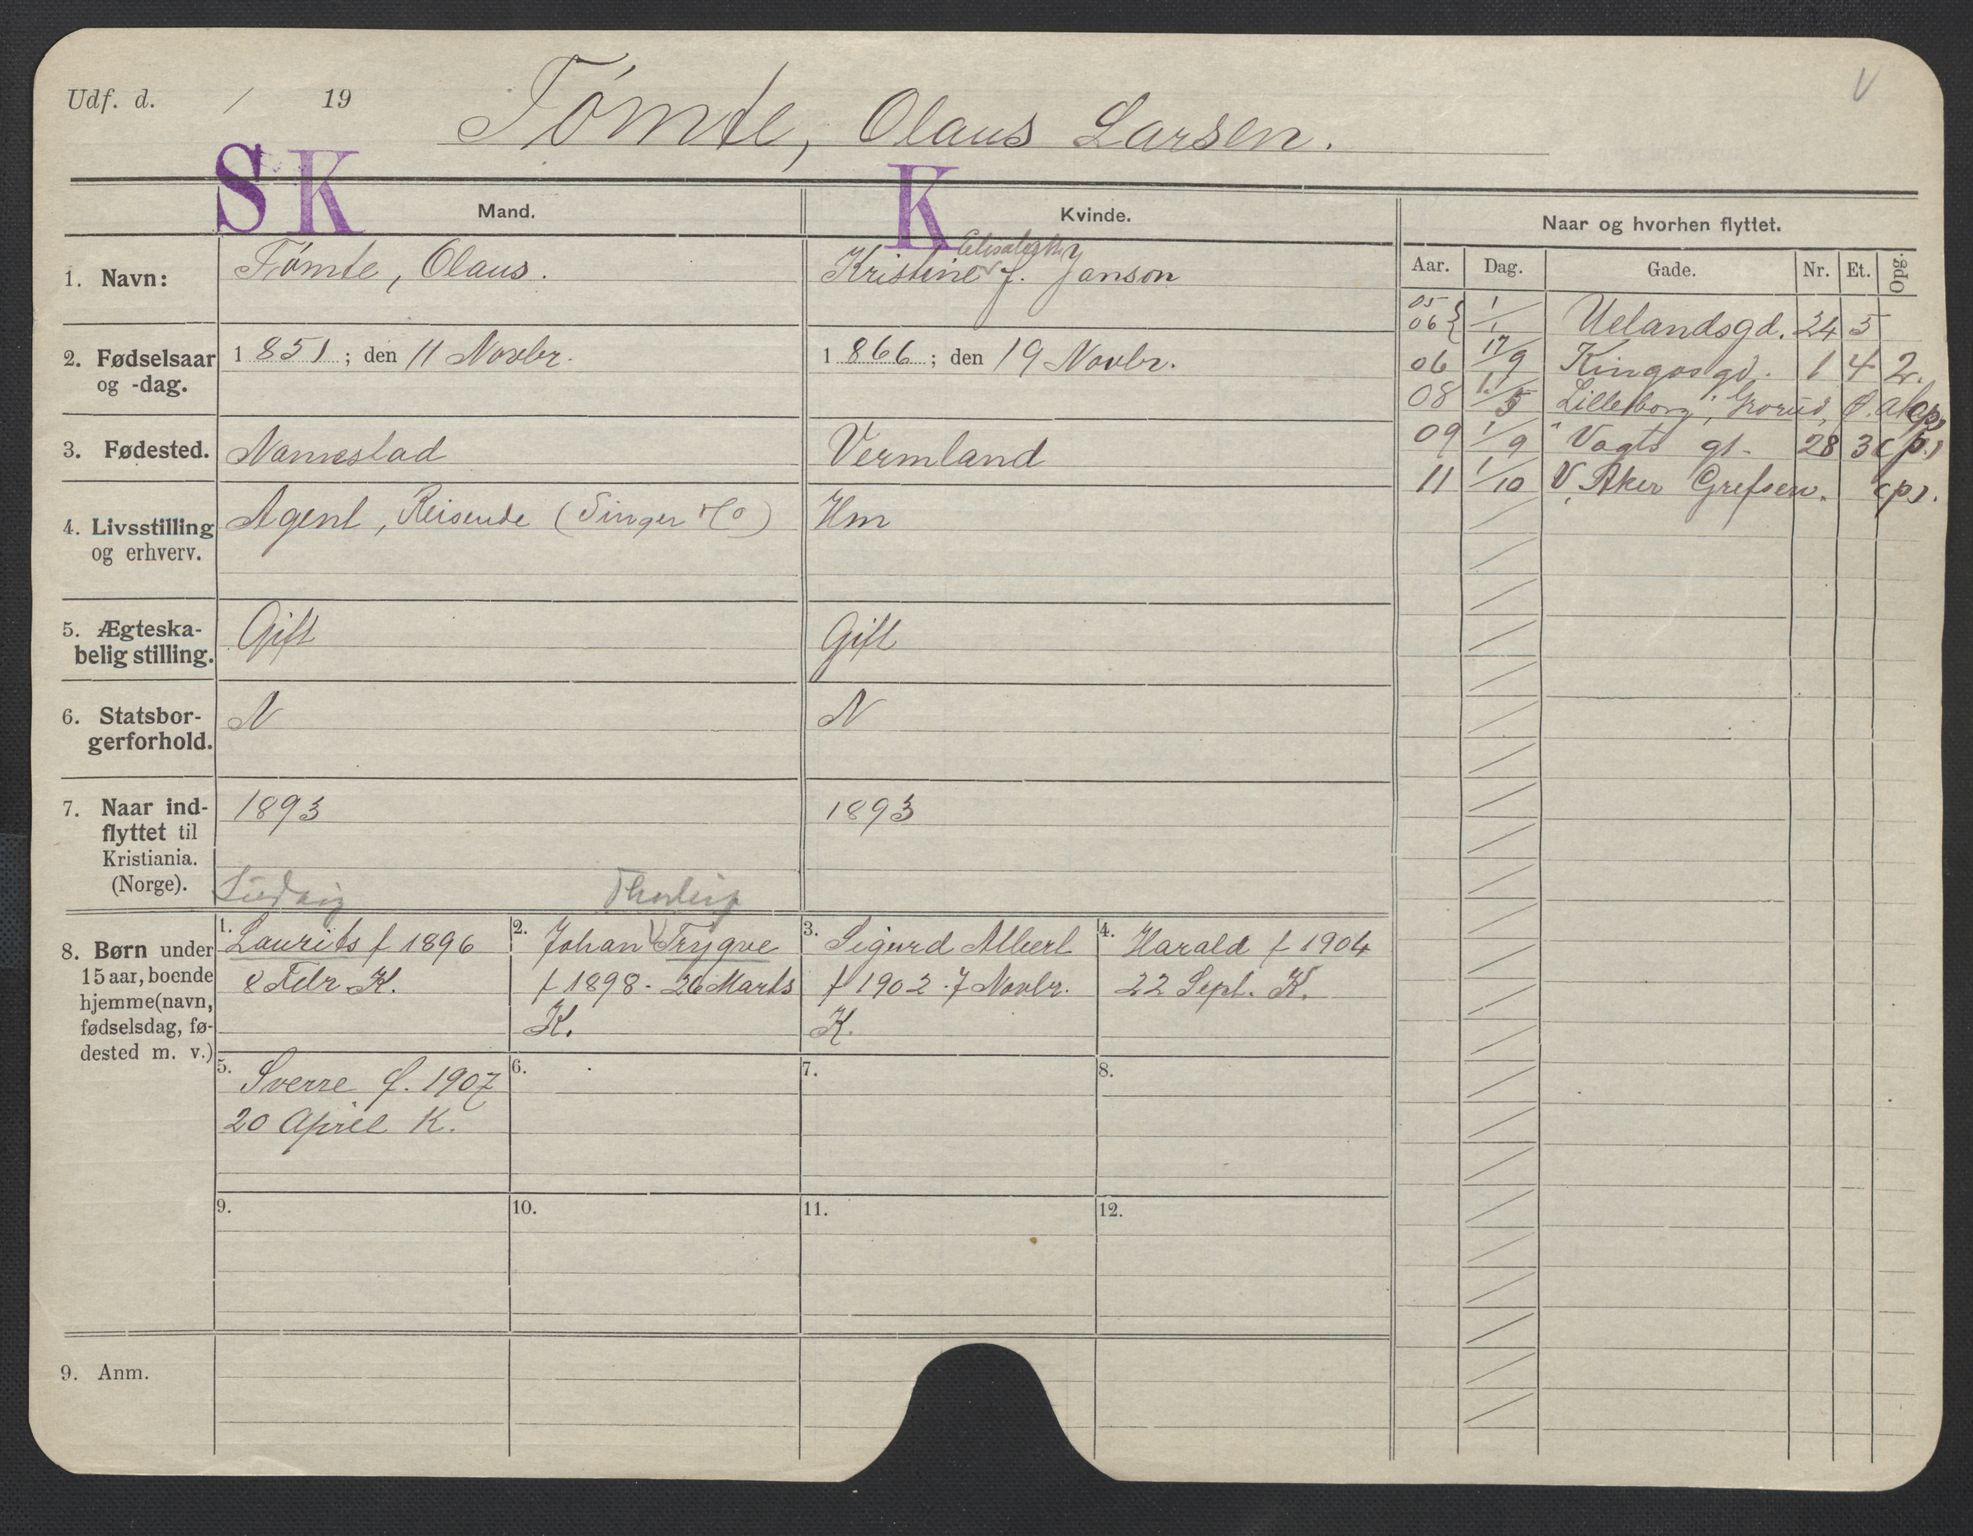 Udf. d. / 19
Tømte, Olaus Larsen.
V
S K
K
Mand.
Kvinde.
Naar og hvorhen flyttet.
Aar. Dag. Gade. Nr. Et. Opg.
1. Navn:
Tømte, Olaus.
Kristine f. Janson
2. Fødselsaar
og -dag.
1851; den 11 Novbr.
1866; den 19 Novbr.
3. Fødested.
Nannestad
Vermland
4. Livsstilling
og erhverv.
Agent, Reisende (Singer Co)
Hm
5. Ægteska-
belig stilling.
Gift
Gift
6. Statsbor-
gerforhold.
N
N
7. Naar ind-
flyttet til
Kristiania.
(Norge).
1893
1893
Ludvig
Thorleif
8. Børn under
15 aar, boende
hjemme (navn,
fødselsdag, fø-
dested m. v.)
1. Laurits f 1896
8 Febr. K.
2. Johan V Trygve
f 1898 - 26 Marts
K.
3. Sigurd Albert
f 1902 - 7 Novbr.
K.
4. Harald f 1904
22 Sept. K.
5. Sverre f. 1907
20 April K.
6.
7.
8.
9.
10.
11.
12.
9. Anm.
05
06 } 1/1 Uelandsgd. 24 5
06 17/9 Kingosgd. 1 4 2.
08 Lilleborg, Grorud,
09 1/9 Vogts gt. 28 3 (p.)
11 1/10 V. Aker Grefsen. (p).